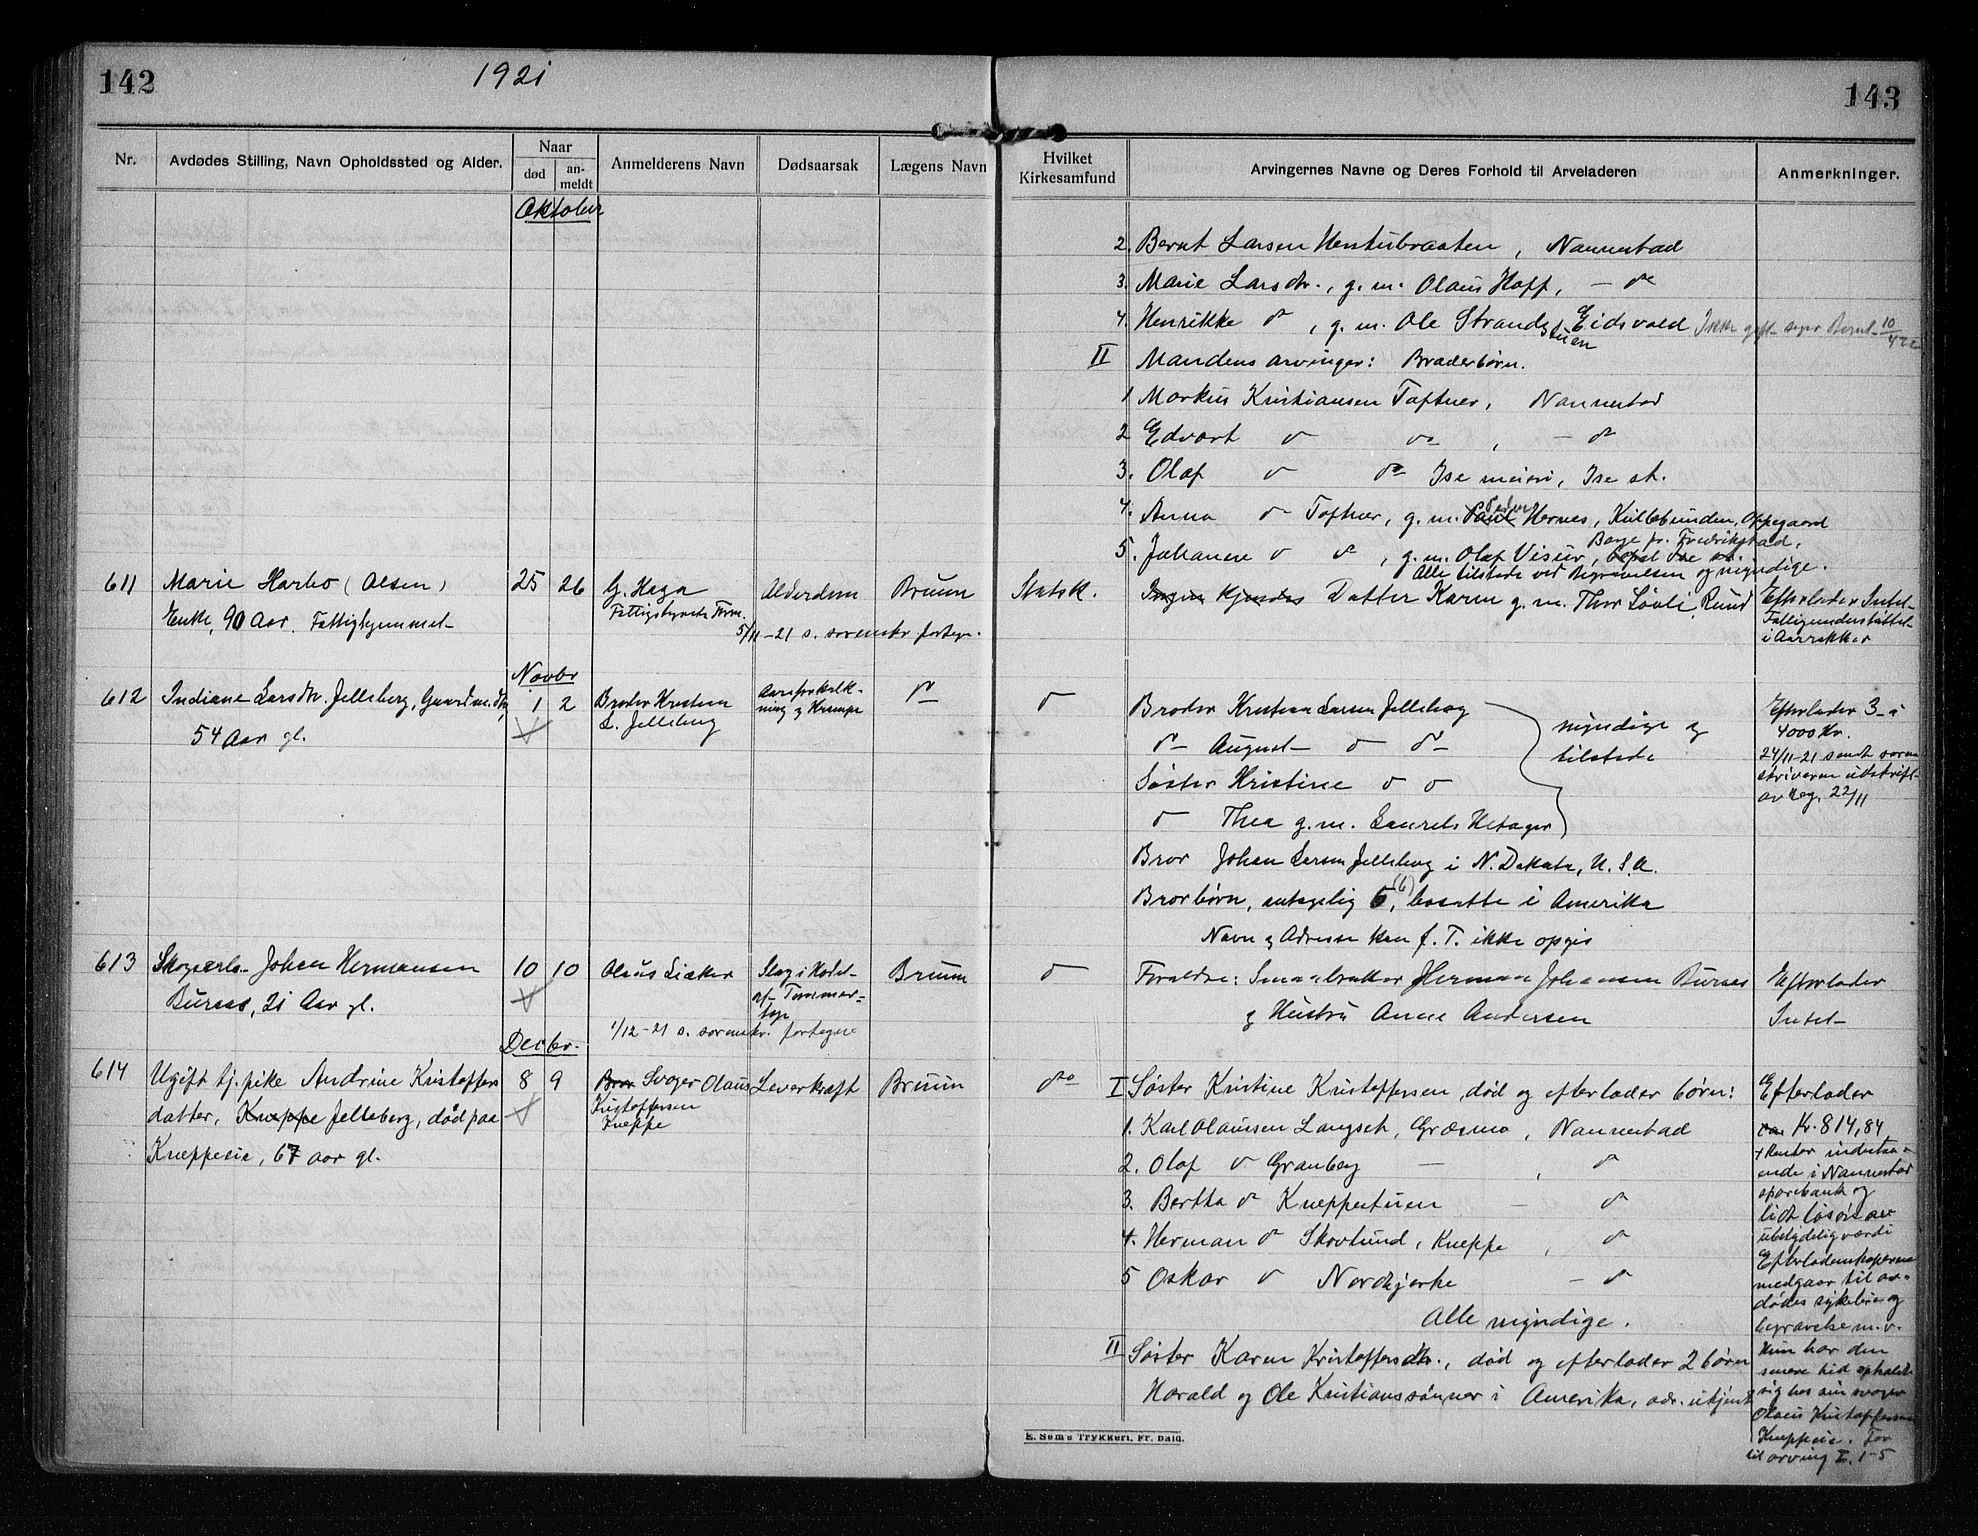 142
1921
143
Nr.
Avdødes Stilling, Navn Opholdssted og Alder.
Naar
død
an-
meldt
Anmelderens Navn
Dødsaarsak
Lægens Navn
Hvilket
Kirkesamfund
Arvingernes Navne og Deres Forhold til Arveladeren
Anmerkninger.
Oktober
2. Bernt Larsen Henstubraaten, Nannestad
3. Marie Larsdtr., g. m. Olaus Hoff, — do
4. Henrikke do, g. m. Ole Strandstuen Eidsvold Ikke gift siger Bernt 10/4 22
II Mandens arvinger: Broderbørn.
1 Markus Kristiansen Toftner, Nannestad
2 Edvart do do, — do
3. Olaf do do Ise meieri, Ise st.
4. Anna do Toftner, g. m. Paul Peder Hernes, Kullebunden, Oppegaard
5. Johanne do do, g. m. Olaf Visur, Borge pr. Fredrikstad,
Alle tilstede ved Begravelsen og myndige.
611 Marie Harbo (Olsen) 25 26 G. Haga Alderdom Bruun Statsk. Ingen kjendes Datter Karen g. m. Thor Løvli, Rund Efterlader Intet
Enke, 90 Aar. Fattighemmet Fattigstyrets Form. Fattigunderstøttet
5/11-21 s. sorenskr. fortegn. i Aarrekker
Novbr
612 Indiane Larsdtr. Jelleberg, Gaardm.dtr, 1 2 Broder Kristian Aareforkalk- do do Broder Kristian Larsen Jelleberg Efterlader 3 à
54 Aar gl. L. Jelleberg ning og Krampe do August do do myndige og 4000 Kr.
Søster Kristine do do tilstede 24/11-21 sendt soren
do Thea g. m. Laurits Hetager skriveren utskrift
av Reg. 22/11
Bror Johan Larsen Jelleberg i N. Dakota, U. S. A.
Brorbørn, antagelig 5, (6) bosatte i Amerika
Navn og Adresse kan f. T. ikke opgis
613 Skogsarb. Johan Hermansen 10 10 Olaus Lieker Slag i Hodet Bruun do Forældre: Smaabruker Herman Johansen Buraas Efterlader
Buraas, 21 Aar gl. af Tømmer- og Hustru Anne Andersen Intet
1/12-21 s. sorenskr. fortegn
Decbr.
614 Ugift tj. pike Andrine Kristoffers 8 9 Bror Svoger Olaus Leverkræft Bruun do I Søster Kristine Kristoffersen, død og efterlader børn: Efterlader
datter, Knæppe Jelleberg, død paa Kristoffersen 1. Karl Olaussen Langset, Græsmo, Nannestad Kr. 814,84
Knæppeie, 67 aar gl. Knæppe 2. Olaf do Granberg — , do + Renter indestaa-
ende i Nannestad
3. Bertha do Knæppestuen — do sparebank og
lidt løsøre av
4. Herman do Skovlund, Knæppe, do ubetydelig værdi
5 Oskar do Nordkjerke — do Efterladenskaperne
medgaar til av-
Alle myndige. dødes sykeleie og
begravelse m. v.
II Søster Karen Kristoffersdtr., død og efterlader 2 børn Hun har den
senere tid opholdt
Harald og Ole Kristianssønner i Amerika, adr. ukjendt sig hos sin svoger
Olaus Kristoffersen
Knæppeie. Far
til arving I. 1-5
E. Sem's Trykkeri, Fr. hald.